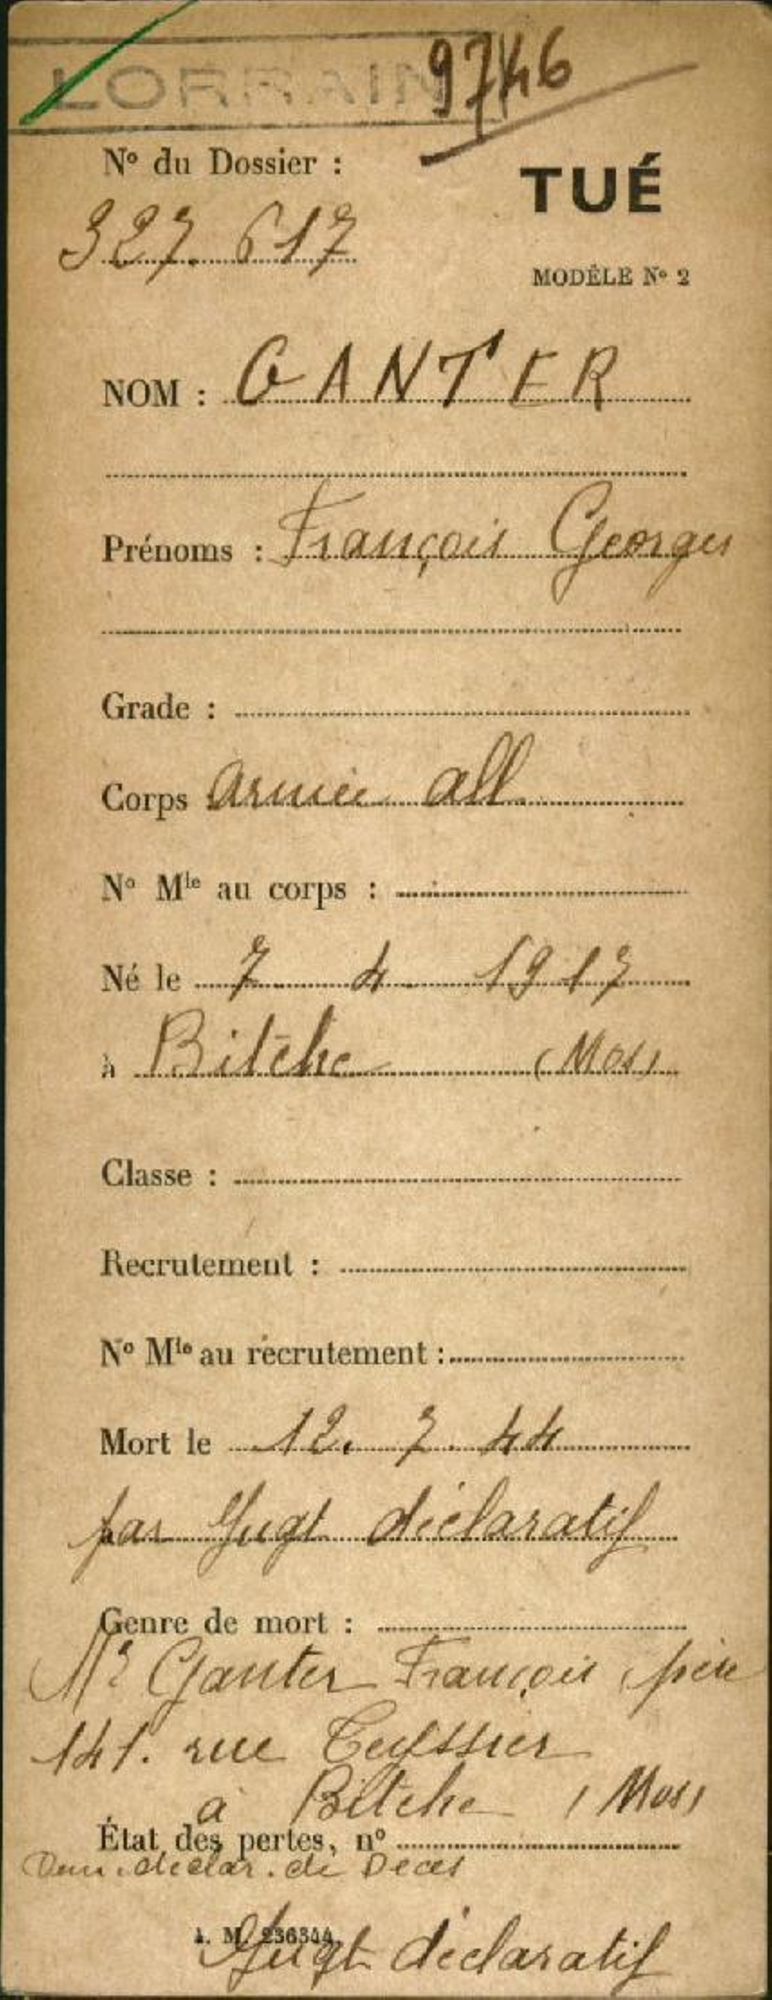 LORRAIN
9746
N° du Dossier :
327.617
TUÉ
MODÈLE N° 2
NOM : GANTER
Prénoms : François Georges
Grade :
Corps armée all
N° Mle au corps :
Né le 7 4 1917
à Bitche (Mos)
Classe :
Recrutement :
N° Mle au recrutement :
Mort le 12. 7. 44
par Jugt déclaratif
Genre de mort :
Mr Ganter François père
141. rue Teyssier
à Bitche (Mos)
État des pertes, n°
Dem. déclar. de Décès
A. M. 236344.
Jugt déclaratif